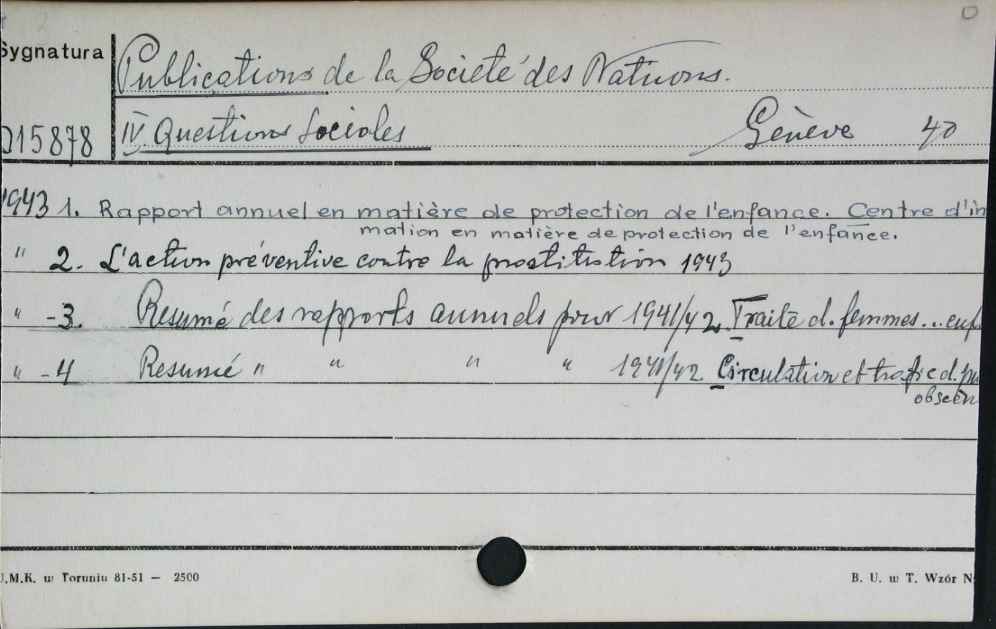 Sygnatura
Publications de la Société des Nations.
015878 IV. Questions Sociales Genève 40
1943 1. Rapport annuel en matière de protection de l'enfance. Centre d'in
mation en matière de protection de l'enfance.
" 2. L'action préventive contre la prostitution 1943
" -3. Resumé des rapports annuels pour 1941/42. Traite d. femmes... enf
" -4 Resumé " " " " 1941/42. Circulation et trafic d. pu
obscen
U.M.K. w Toruniu 81-51 — 2500 B. U. w T. Wzór N